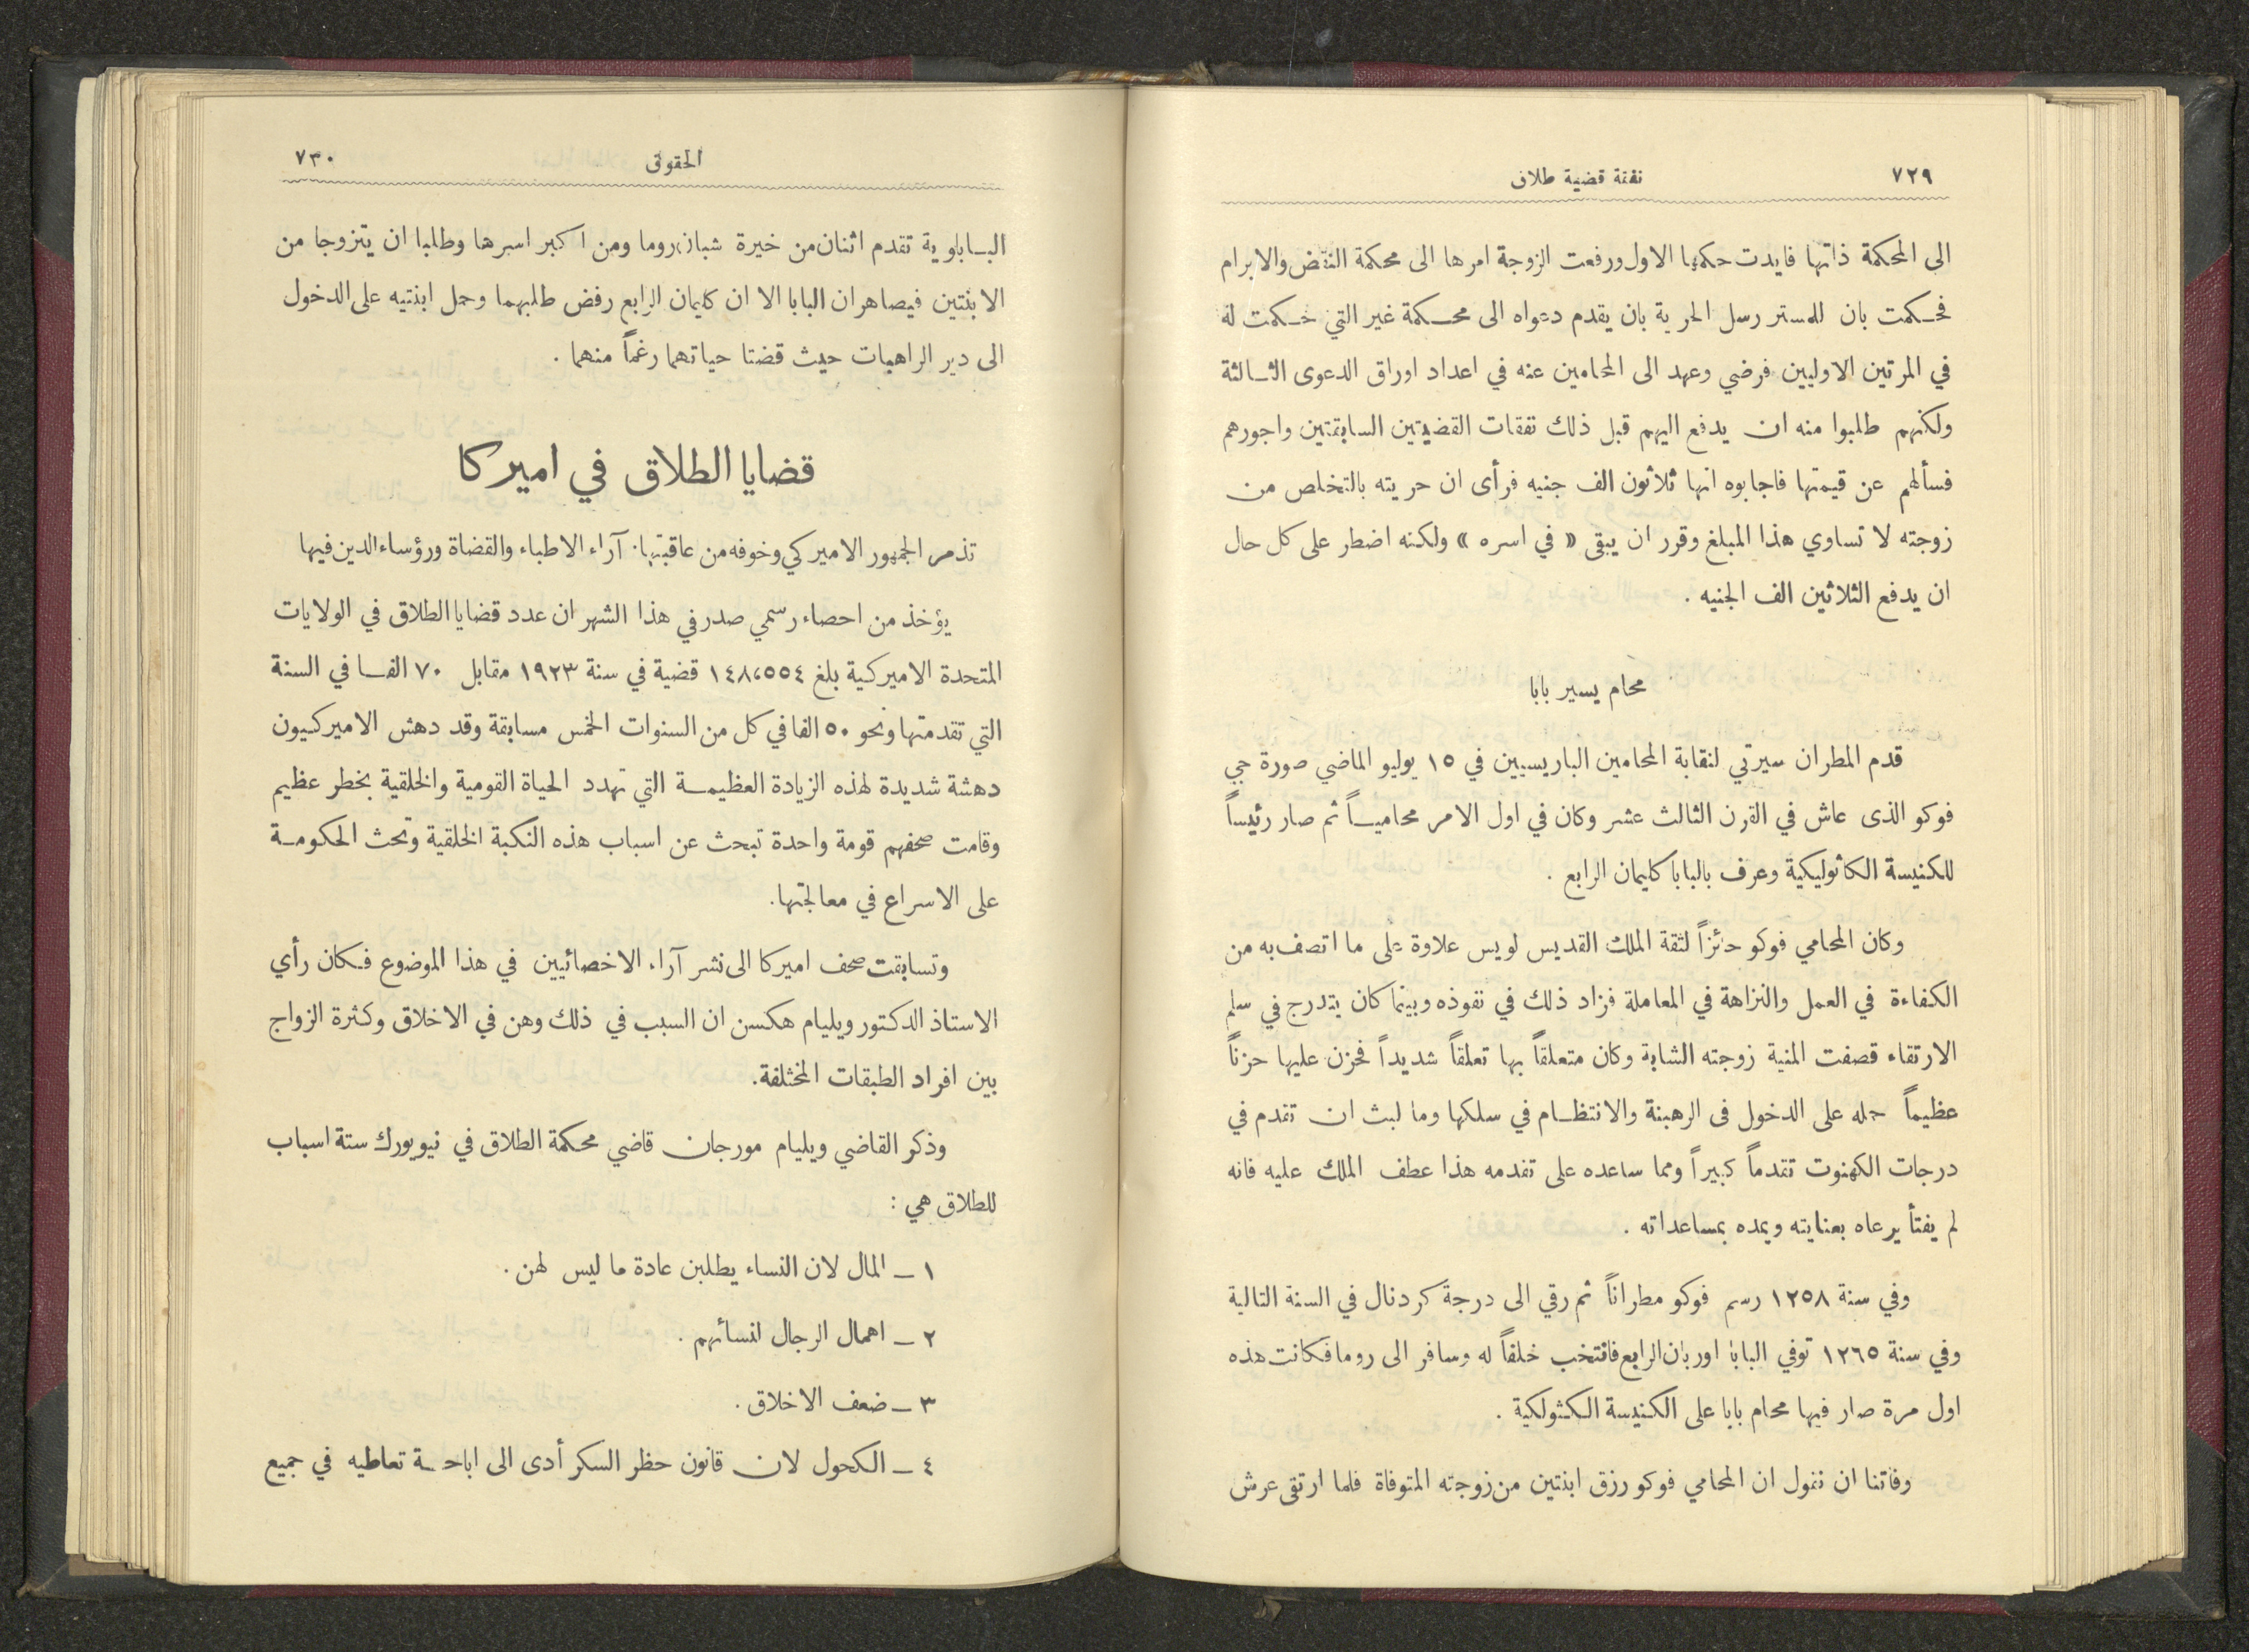 ٧٢٩
نفقة قضية طلاق
الى المحكمة ذاتها فايدت حكمها الاول ورفعت الزوجة امرها الى محكمة النقض والابرام
فحكمت بان للمستر رسل الحرية بان يقدم دعواه الى محكمة غير التي حكمت له
في المرتين الاوليين فرضي وعهد الى المحامين عنه في اعداد اوراق الدعوى الثالثة
ولكنهم طلبوا منه ان يدفع اليهم قبل ذلك نفقات القضيتين السابقتين واجورهم
فسألهم عن قيمتها فاجابوه انها ثلاثون الف جنيه فرأى ان حريته بالتخلص من
زوجته لا تساوي هذا المبلغ وقرر ان يبقى « في اسره » ولكنه اضطر على كل حال
ان يدفع الثلاثين الف الجنيه .
محام يسير بابا
قدم المطران سيرتي لنقابة المحامين الباريسيين في ١٥ يوليو الماضي صورة جي
فوكو الذى عاش في القرن الثالث عشر وكان في اول الامر محامياً ثم صار رئيساً
للكنيسة الكاثوليكية وعرف بالبابا كليمان الرابع .
وكان المحامي فوكو حائزاً لثقة الملك القديس لويس علاوة على ما اتصف به من
الكفاءة في العمل والنزاهة في المعاملة فزاد ذلك في نفوذه وبينما كان يتدرج في سلم
الارتقاء قصفت المنية زوجته الشابة وكان متعلقاً بها تعلقاً شديداً فحزن عليها حزناً
عظيماً حمله على الدخول فى الرهبنة والانتظام في سلكها وما لبث ان تقدم في
درجات الكهنوت تقدماً كبيراً ومما ساعده على تقدمه هذا عطف الملك عليه فانه
لم يفتأ يرعاه بعنايته ويمده بمساعداته .
وفي سنة ١٢٥٨ رسم فوكو مطراناً ثم رقي الى درجة كردنال في السنة التالية
وفي سنة ١٢٦٥ توفي البابا اوربان الرابع فانتخب خلفاً له وسافر الى روما فكانت هذه
اول مرة صار فيها محام بابا على الكنيسة الكثولكية .
وفاتنا ان نقول ان المحامي فوكو رزق ابنتين من زوجته المتوفاة فلما ارتقى عرش
الحقوق
٧٣٠
البــاباوية تقدم اثنان من خيرة شبان روما ومن اكبر اسرها وطلبا ان يتزوجا من
الابنتين فيصاهران البابا الا ان كليمان الرابع رفض طلبهما وحمل ابنتيه على الدخول
الى دير الراهبات حيث قضتا حياتهما رغماً منهما .
قضايا الطلاق في اميركا
تذمر الجمهور الاميركي وخوفه من عاقبتها . آراء الاطباء والقضاة ورؤساء الدين فيها
يؤخذ من احصاء رسمي صدر في هذا الشهر ان عدد قضايا الطلاق في الولايات
المتحدة الاميركية بلغ ١٤٨،٥٥٤ قضية في سنة ١٩٢٣ مقابل ٧٠ الفــا في السنة
التي تقدمتها ونحو ٥٠ الفا في كل من السنوات الخمس مسابقة وقد دهش الاميركيون
دهشة شديدة لهذه الزيادة العظيمــة التي تهدد الحياة القومية والخلقية بخطر عظيم
وقامت صحفهم قومة واحدة تبحث عن اسباب هذه النكبة الخلقية وتحث الحكومــة
على الاسراع في معالجتها.
وتسابقت صحف اميركا الى نشر آراء الاخصائيين في هذا الموضوع فكان رأي
الاستاذ الدكتور ويليام هكسن ان السبب في ذلك وهن في الاخلاق وكثرة الزواج
بين افراد الطبقات المختلفة.
وذكر القاضي ويليام مورجان قاضي محكمة الطلاق في نيويورك ستة اسباب
للطلاق هي :
١ ــ المال لان النساء يطلبن عادة ما ليس لهن .
٢ ــ اهمال الرجال انسائهم .
٣ ــ ضعف الاخلاق .
٤ ــ الكحول لان قانون حظر السكر أدى الى اباحــة تعاطيه في جميع